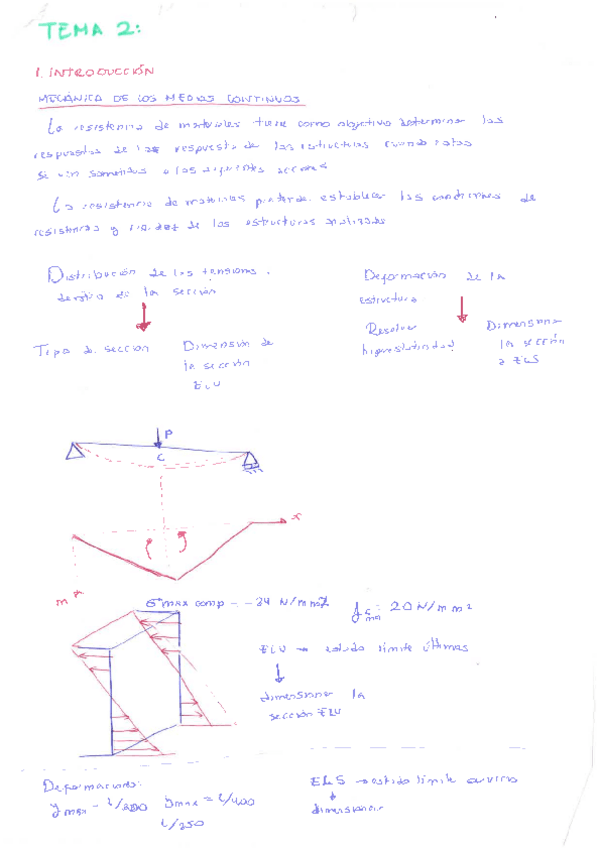 TEMA 2:
1. INTRODUCCIÓN
MECÁNICA DE LOS MEDIOS CONTINUOS
La resistencia de materiales tiene como objetivo determinar las
respuestas de las respuesta de las estructuras cuando estas
se ven sometidas a las siguientes acciones
La resistencia de materiales pretende establecer las condiciones de
resistencia y rigidez de las estructuras analizadas
Distribución de las tensiones
dentro de la sección
Deformación de la
estructura
Tipo de sección
Dimensión de
la sección
ELU
Resolver
hiperestaticidad
Dimensionar
la sección
a ELS
P
C
x
M+
σmax comp = -34 N/mm2
20 N/mm2
ELU → estado límite últimas
dimensionar la
sección ELU
Deformaciones:
ymax = L/300 ymax = L/400
L/250
ELS → estado límite servicio
dimensionar